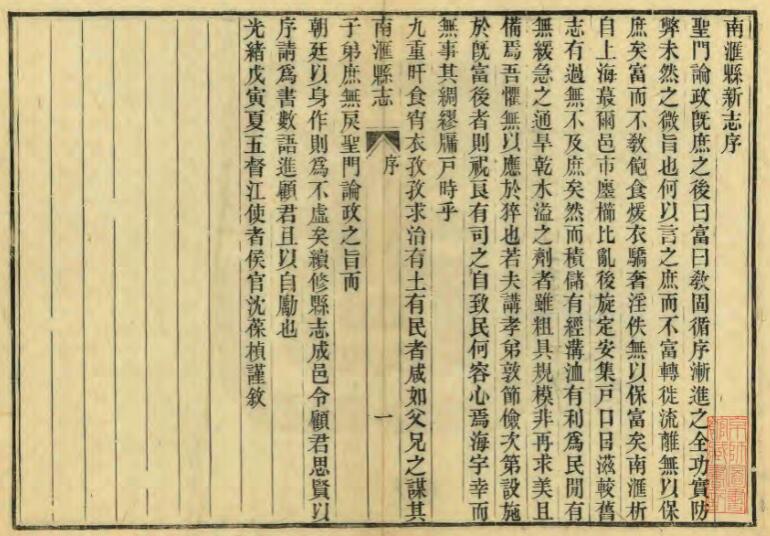 南滙縣新志序
聖門論政旣庶之後曰富曰敎固循序漸進之全功實防
弊未然之微旨也何以言之庶而不富轉徙流離無以保
庶矣富而不敎飽食煖衣驕奢淫佚無以保富矣南滙析
自上海蕞爾邑市廛櫛比亂後旋定安集戶口日滋較舊
志有過無不及庶矣然而積儲有經溝洫有利爲民閒有
無緩急之通旱乾水溢之劑者雖粗具規模非再求美且
備焉吾懼無以應於猝也若夫講孝弟敦節儉次第設施
於旣富後者則視良有司之自致民何容心焉海宇幸而
無事其綢繆牖戶時乎
九重旰食宵衣孜孜求治有土有民者咸如父兄之謀其
南滙縣志 序 一
子弟庶無戾聖門論政之旨而
朝廷以身作則爲不虛矣續修縣志成邑令顧君思賢以
序請爲書數語進顧君且以自勵也
光緒戊寅夏五督江使者侯官沈葆楨謹敘